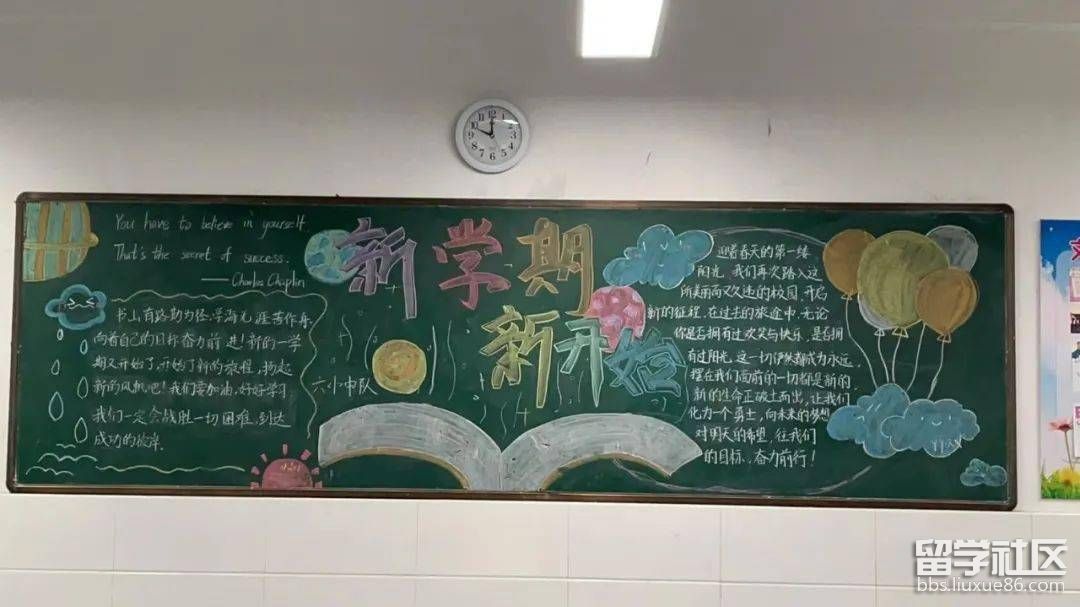 You have to believe in yourself.
That's the secret of success.
——Charles Chaplin
书山有路勤为径,学海无涯苦作舟,
向着自己的目标奋力前进!新的一学
期又开始了,开始了新的旅程,扬起
新的风帆吧!我们要加油,好好学习
我们一定会战胜一切困难,到达
成功的彼岸.
新学期
新开始
六小中队
迎着春天的第一缕
阳光,我们再次踏入这
所美丽而又久违的校园,开启
新的征程,在过去的旅途中,无论
你是否拥有过欢笑与快乐,是否拥
有过阳光,这一切伊然都成为永远,
摆在我们面前的一切都是新的,
新的生命正破土而出,让我们
化为一个勇士,向未来的梦想
对明天的希望,往我们
的目标,奋力前行!
12
1
2
3
4
5
6
7
8
9
10
11
留学社区
bbs.liuxue86.com